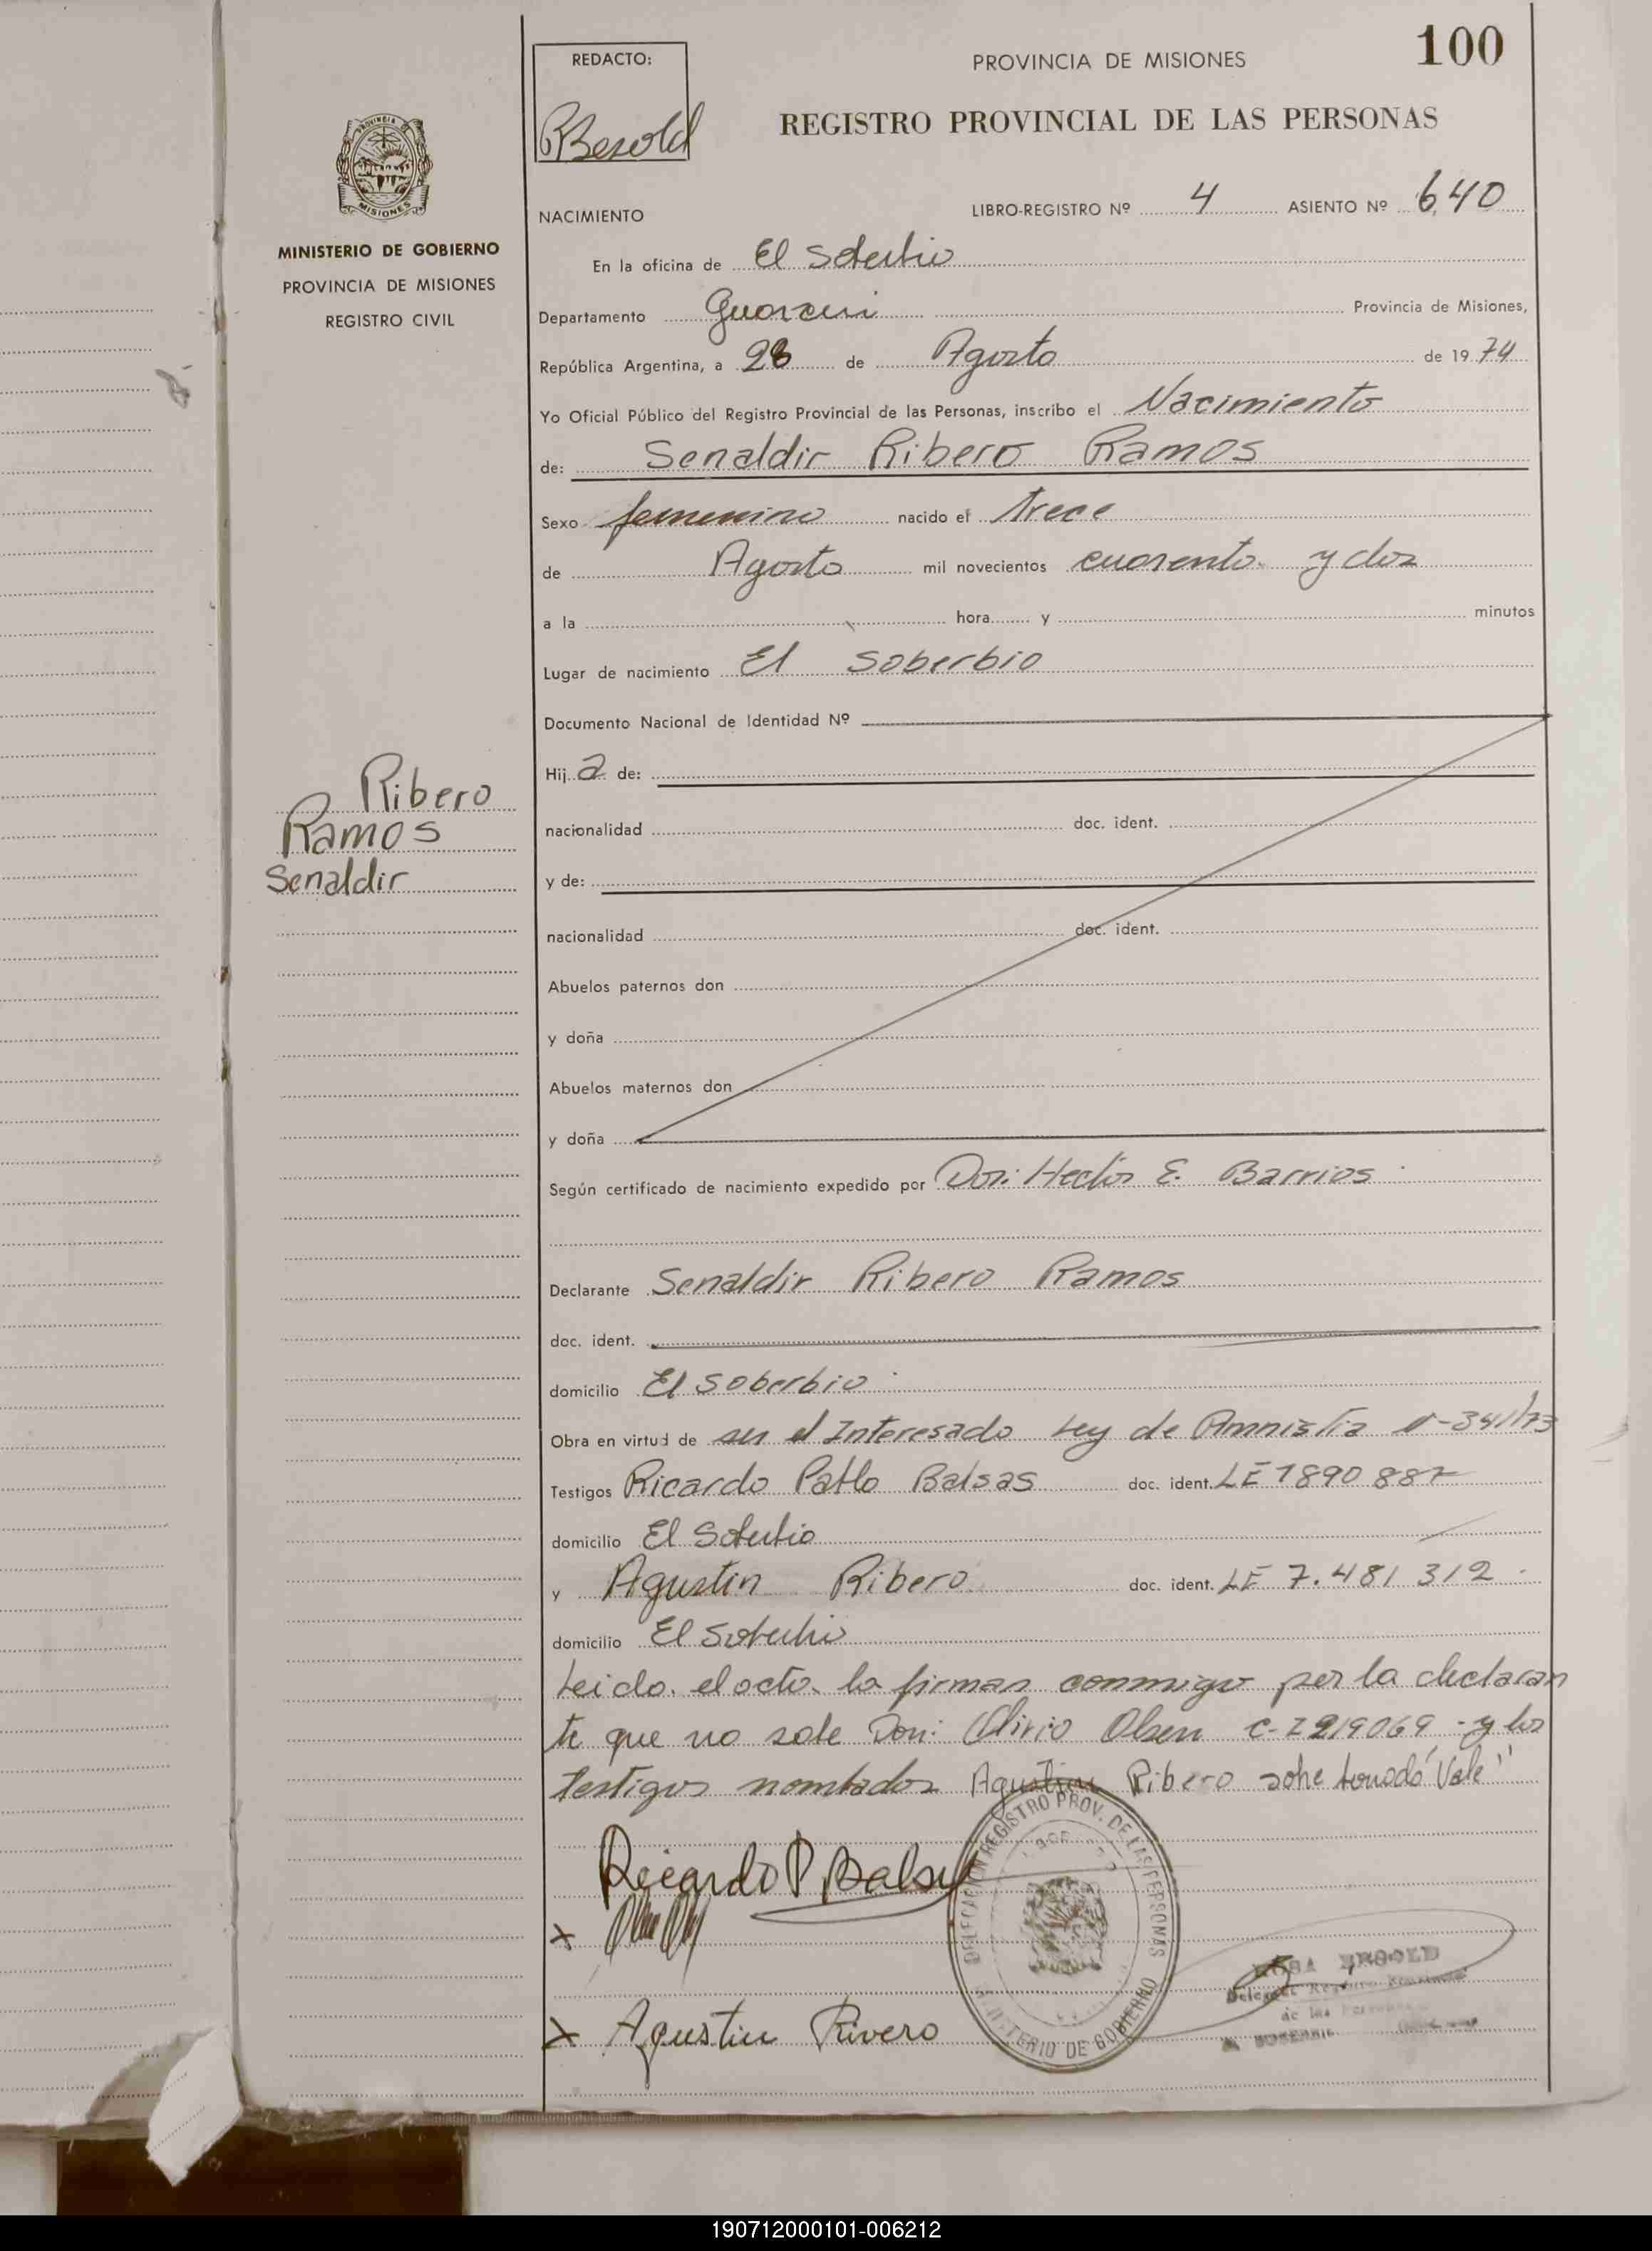 100
REDACTO:
PROVINCIA DE MISIONES
RBesold
REGISTRO PROVINCIAL DE LAS PERSONAS
PROVINCIA DE
MISIONES
MINISTERIO DE GOBIERNO
PROVINCIA DE MISIONES
REGISTRO CIVIL
NACIMIENTO LIBRO-REGISTRO Nº 4 ASIENTO Nº 640
En la oficina de El Soberbio
Departamento Guarani Provincia de Misiones,
República Argentina, a 28 de Agosto de 19 74
Yo Oficial Público del Registro Provincial de las Personas, inscribo el Nacimiento
de: Senaldir Ribero Ramos
Sexo femenino nacido el trece
de Agosto mil novecientos cuarenta y dos
a la hora y minutos
Lugar de nacimiento El Soberbio
Documento Nacional de Identidad Nº
Hij a de:
Ribero
Ramos
Senaldir
nacionalidad doc. ident.
y de:
nacionalidad doc. ident.
Abuelos paternos don
y doña
Abuelos maternos don
y doña
Según certificado de nacimiento expedido por Don: Hector E. Barrios
Declarante Senaldir Ribero Ramos
doc. ident.
domicilio El Soberbio
Obra en virtud de ser el Interesado Ley de Amnistia 341/73
Testigos Ricardo Pablo Balsas doc. ident. LE 7890 887
domicilio El Soberbio
y Agustin Ribero doc. ident. LE 7.481 312
domicilio El Soberbio
Leido el acto la firman conmigo por la declaran
te que no sabe Don: Olirio Olsen C-I 219069 - y los
testigos nombados Agustin Ribero sobe "Vale"
Ricardo P Balsas
X
X Agustin Rivero
DELEGACION REGISTRO PROV. DE LAS PERSONAS
MINISTERIO DE GOBIERNO
ROSA BESOLD
Delegada Registro Provincial
de las Personas
190712000101-006212